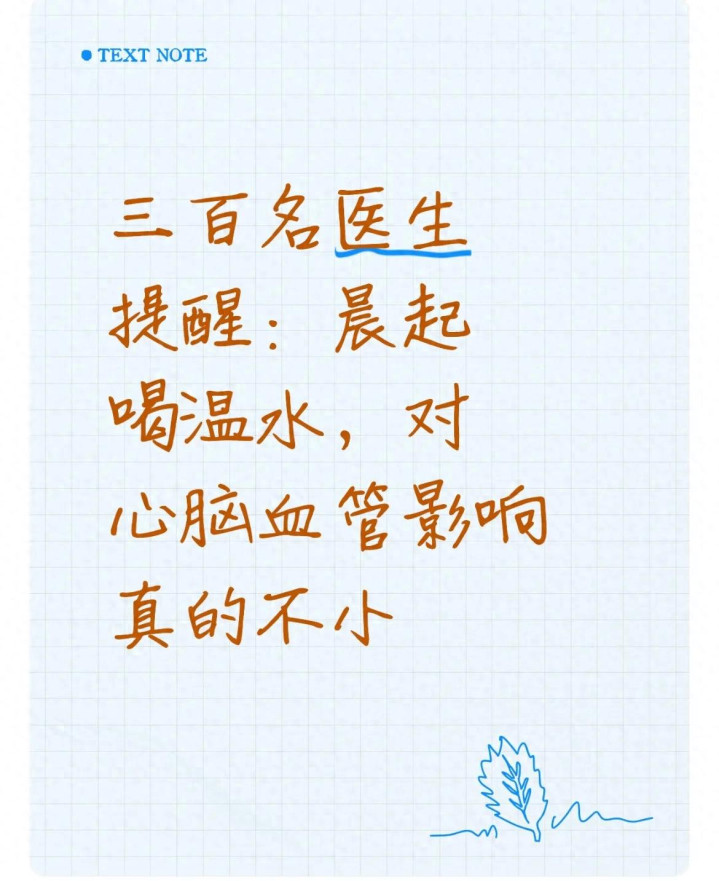 TEXT NOTE
三百名医生
提醒：晨起
喝温水，对
心脑血管影响
真的不小